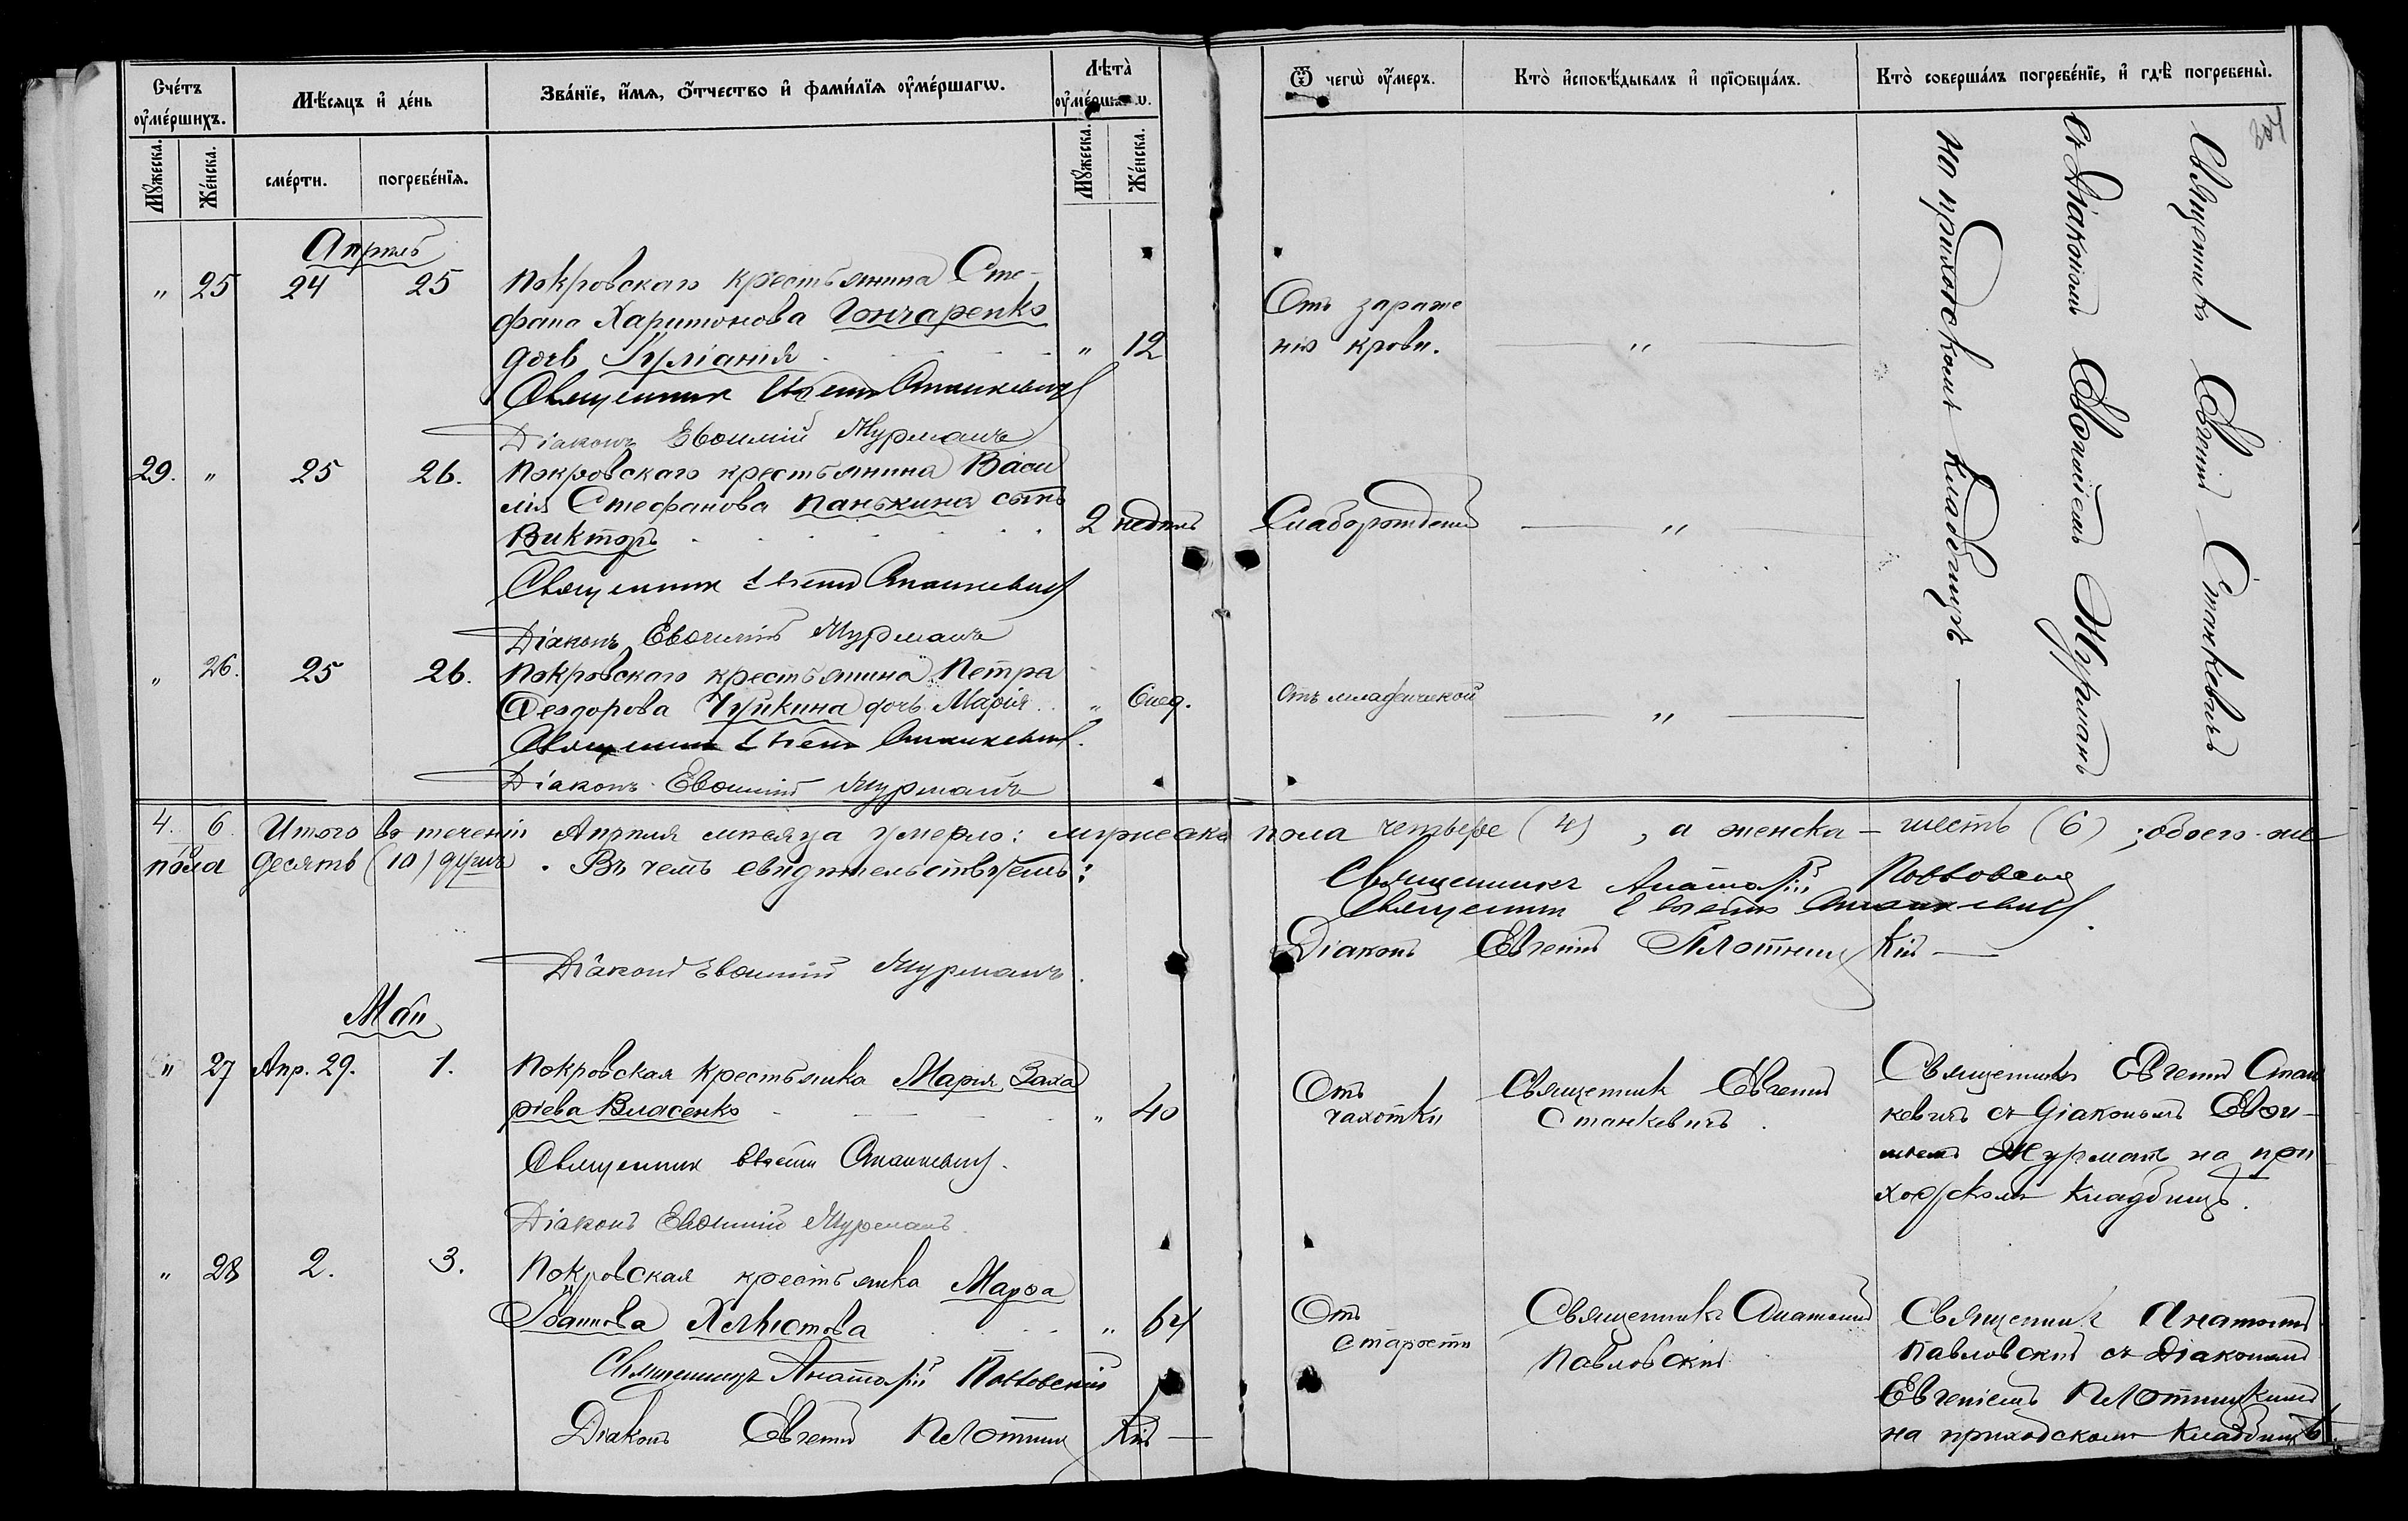 Счетъ оумершихъ.
Мѣсяцъ и день
Званїе, имя, отчество и фамилїя оумершагѡ.
Лѣта оумершагѡ.
Ѿ чегѡ оумеръ.
Кто исповѣдывалъ и прїѡбщалъ.
Кто совершалъ погребенїе, и гдѣ погребены.
Мужеска.
Женска.
смерти.
погребенїя.
Мужеска.
Женска.
307
Апрѣль
" 25 24 25 Покровскаго крестьянина Сте-
фана Харитонова Гончаренко
дочь Іуліанія " 12
Отъ зараже
нія крови. — " —
Священникъ Евгеній Станкевичъ
Діаконъ Евѳимій Журманъ
29. " 25 26. Покровскаго крестьянина Васи
лія Стефанова Панькина сынъ
Викторъ 2 недѣль
Слаборожденный — " —
Священникъ Евгеній Станкевичъ
Діаконъ Евѳимій Журманъ
" 26. 25 26. Покровскаго крестьянина Петра
Ѳеодорова Чуйкина дочь Марія " 6 нед.
Отъ младенческой — " —
Священникъ Евгеній Станкевичъ.
Діаконъ Евѳимій Журманъ
Священникъ Евгеній Станкевичъ
съ Діакономъ Евѳиміемъ Журманъ
на приходскомъ кладбищѣ —
4. 6. Итого въ теченіи Апрѣля мѣсяца умерло: мужеска пола четыре (4), а женска — шесть (6); обоего-же
пола десять (10) душъ. Въ чемъ свидѣтельствуемъ:
Священникъ Анатолій Павловскій
Священникъ Евгеній Станкевичъ.
Діаконъ Евгеній Плотницкій —
Діаконъ Евѳимій Журманъ.
Май
" 27 Апр. 29. 1. Покровская крестьянка Марія Заха
ріева Власенко " 40
Отъ
чахотки
Священникъ Евгеній
Станкевичъ.
Священникъ Евгеній Стан
кевичъ съ діакономъ Евѳи-
міемъ Журманъ на при
ходскомъ кладбищѣ.
Священникъ Евгеній Станкевичъ.
Діаконъ Евѳимій Журманъ.
" 28 2. 3. Покровская крестьянка Марѳа
Іоаннова Хлыстова " 64
Отъ
старости
Священникъ Анатолій
Павловскій
Священникъ Анатолій
Павловскій съ Діакономъ
Евгеніемъ Плотницкимъ
на приходскомъ кладбищѣ.
Священникъ Анатолій Павловскій
Діаконъ Евгеній Плотницкій —